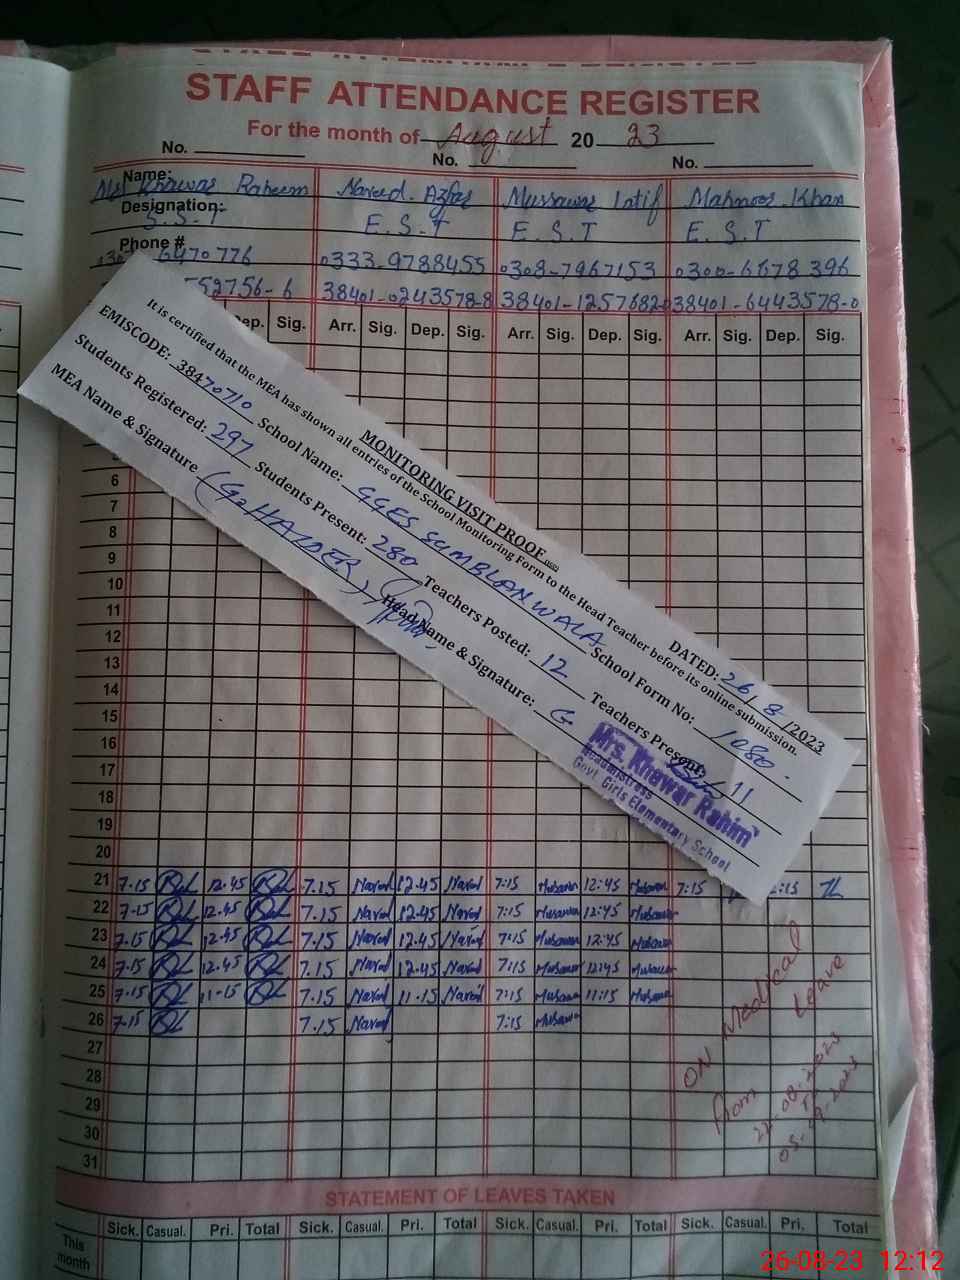 STAFF ATTENDANCE REGISTER
For the month of August 20 23
No. No. No.
Name: Khawar Raheem Naved. Azfar Mussawar latif Mahnoor Khan
Designation: S.S.T E.S.T E.S.T E.S.T
Phone # 6470776 0333-9788455 0308-7967153
552756-6 38401-0243578-8 38401-1257682 38401-6443578-0
Dep. Sig. Arr. Sig. Dep. Sig. Arr. Sig. Dep. Sig. Arr. Sig. Dep. Sig.
MONITORING VISIT PROOF
DATED: 26/8/2023
It is certified that the MEA has shown all entries of the School Monitoring Form to the Head Teacher before its online submission.
EMISCODE: 38470710 School Name: GGES SUMBLANWALA School Form No: 1080
Students Registered: 297 Students Present: 280 Teachers Posted: 12 Teachers Present: 11
MEA Name & Signature (G. HAIDER) Head Name & Signature:
Mrs. Khawar Rahim
Headmistress
Govt. Girls Elementary School
6
7
8
9
10
11
12
13
14
15
16
17
18
19
20
21 7.15 12.45 7.15 Naved 12.45 Naved 7:15 Musawar 12:45 Musawar 7:15
22 7.15 12.45 7.15 Naved 12.45 Naved 7:15 Musawar 12:45 Musawar
23 7.15 12.45 7.15 Naved 12.45 Naved 7:15 Musawar 12:45 Musawar
24 7.15 12.45 7.15 Naved 12.45 Naved 7:15 Musawar 12:45 Musawar
25 7.15 11.15 7.15 Naved 11.15 Naved 7:15 Musawar 11:15 Musawar
26 7.15 7.15 Naved 7:15 Musawar
27
28
29
30
31
ON Medical Leave
from 22-08-2023
To
05-09-2023
STATEMENT OF LEAVES TAKEN
Sick. Casual. Pri. Total Sick. Casual. Pri. Total Sick. Casual. Pri. Total Sick. Casual. Pri. Total
This month
26-08-23 12:12